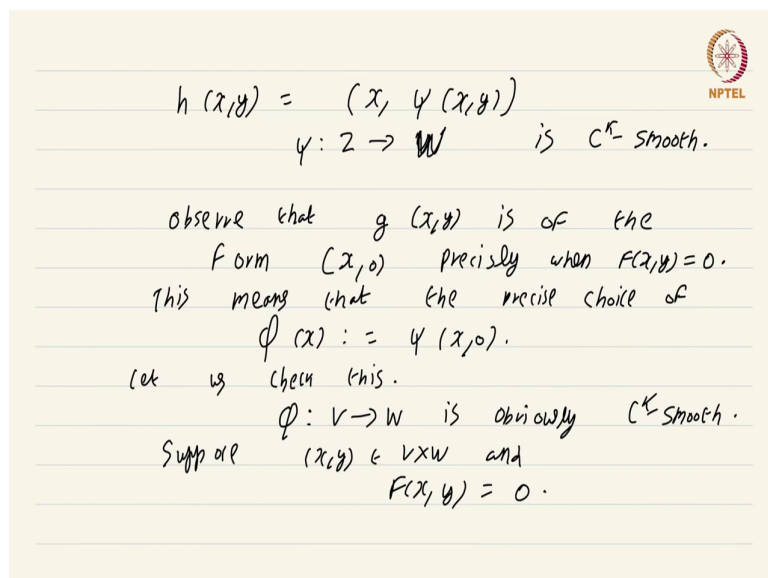 NPTEL
h (x,y) = (x, ψ (x,y))
ψ : Z → W is C^k- smooth.
observe that g (x,y) is of the
form (x,0) precisly when F(x,y) = 0.
This means that the precise choice of
φ (x) : = ψ (x,0).
Let us check this.
φ : V → W is obviously C^k smooth.
Suppose (x,y) ∈ V×W and
F(x, y) = 0.